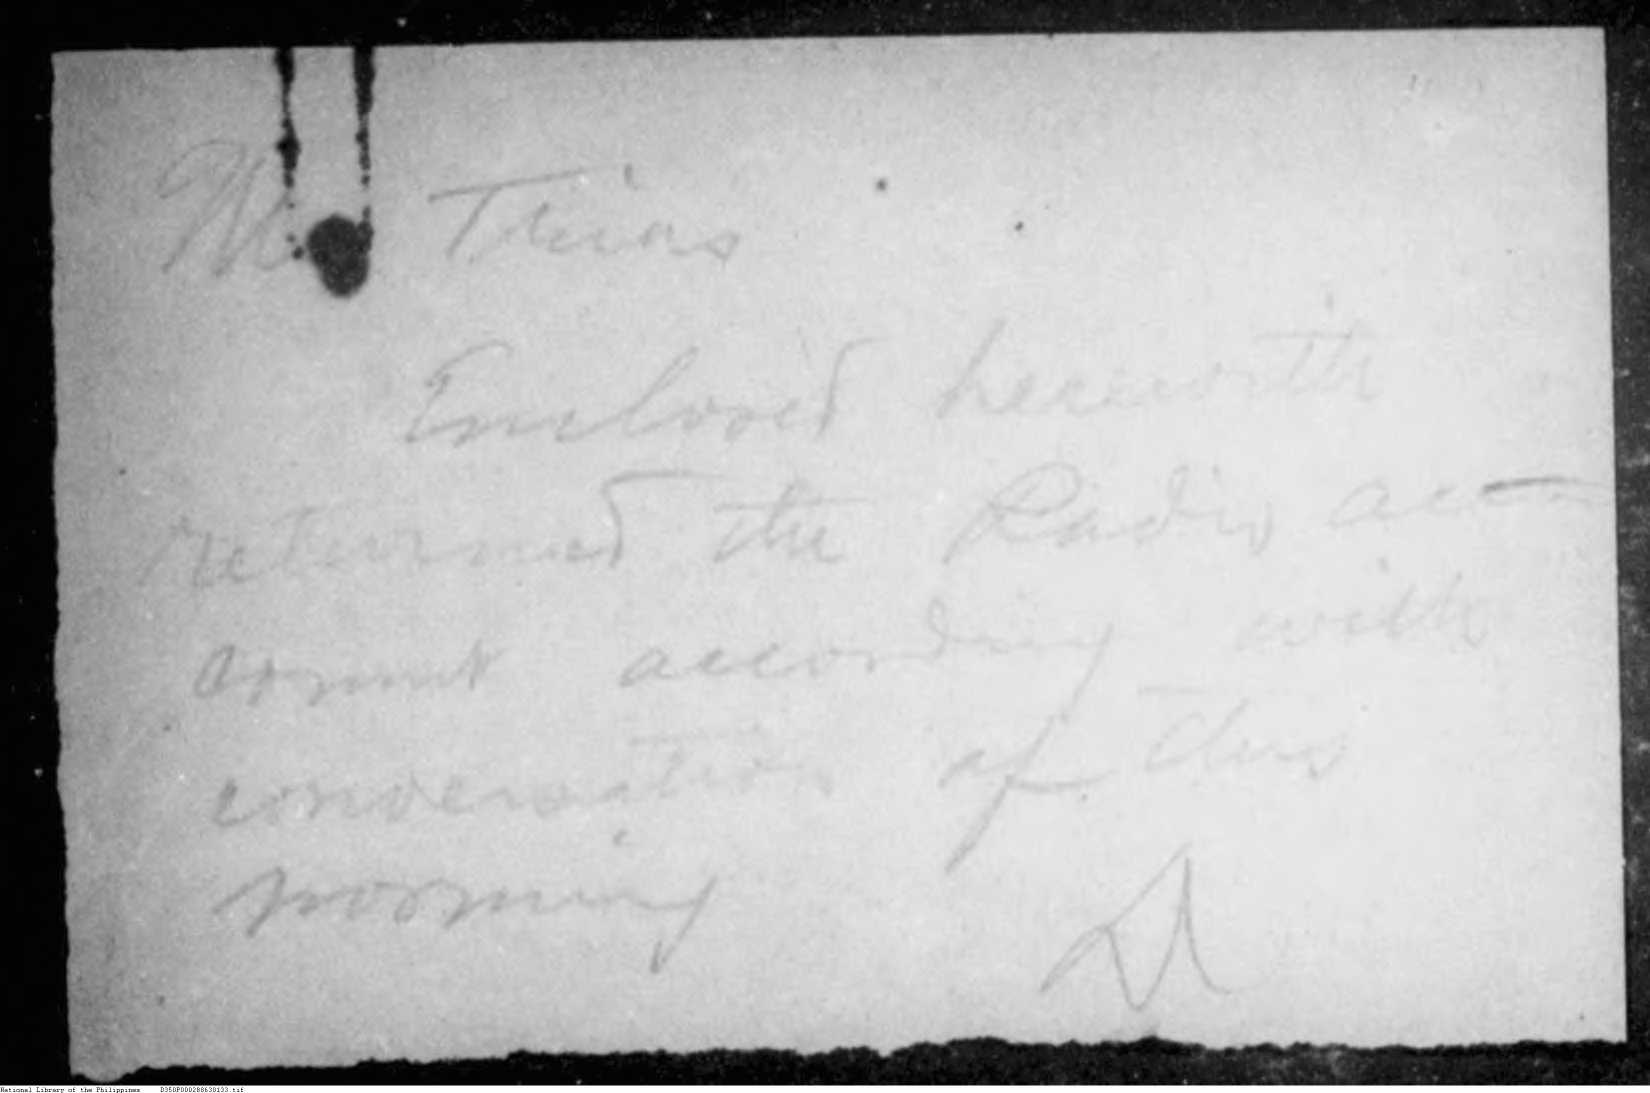 Mr Trias
Enclosed herewith
returned the Radio ac-
count according with
conversation of this
morning
National Library of the Philippines D350P000288630133.tif